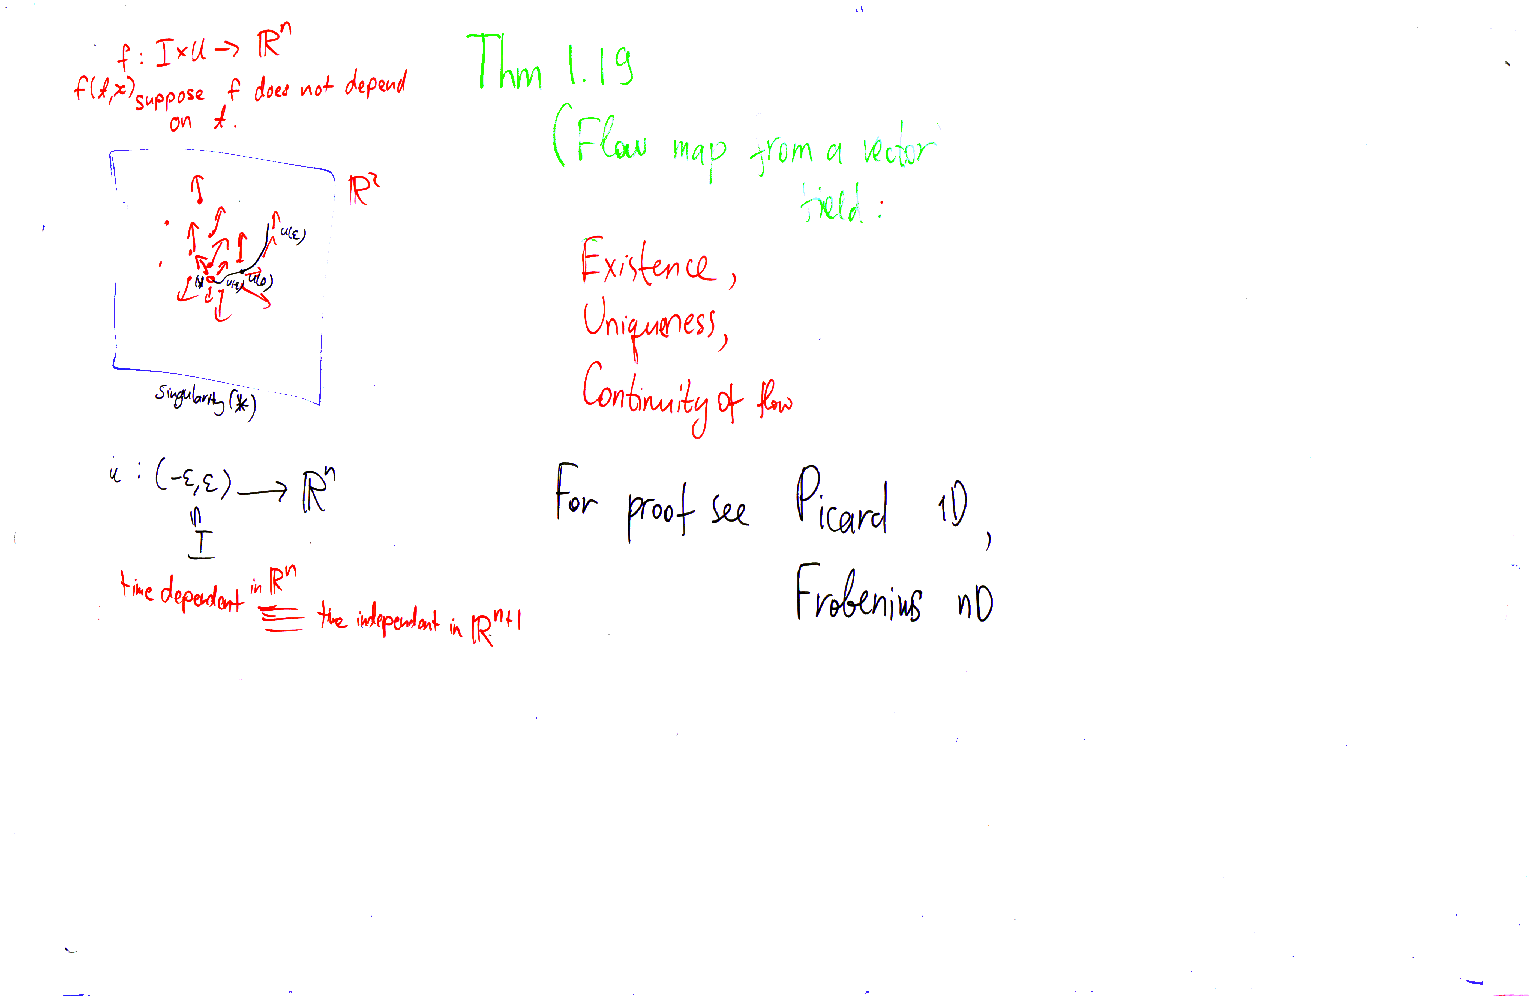 f : I×U → ℝⁿ
f(t,x) suppose f does not depend
on t.
ℝ²
u(ε)
u(0)
(*)
singularity (*)
u : (-ε,ε) → ℝⁿ
I
time dependent in ℝⁿ
≡ the independent in ℝⁿ⁺¹
Thm 1.19
(Flow map from a vector
field :
Existence,
Uniqueness,
Continuity of flow
For proof see Picard 1D,
Frobenius nD